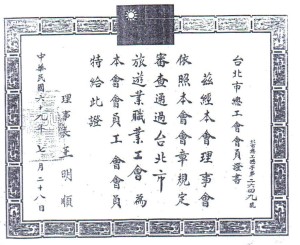 台北市總工會會員證書
茲經本會理事會
依照本會會章規定
審查通過台北市
旅遊業職業工會為
本會會員工會會員
特給此證
理事長
明順
中華民國六九年
月二十八日